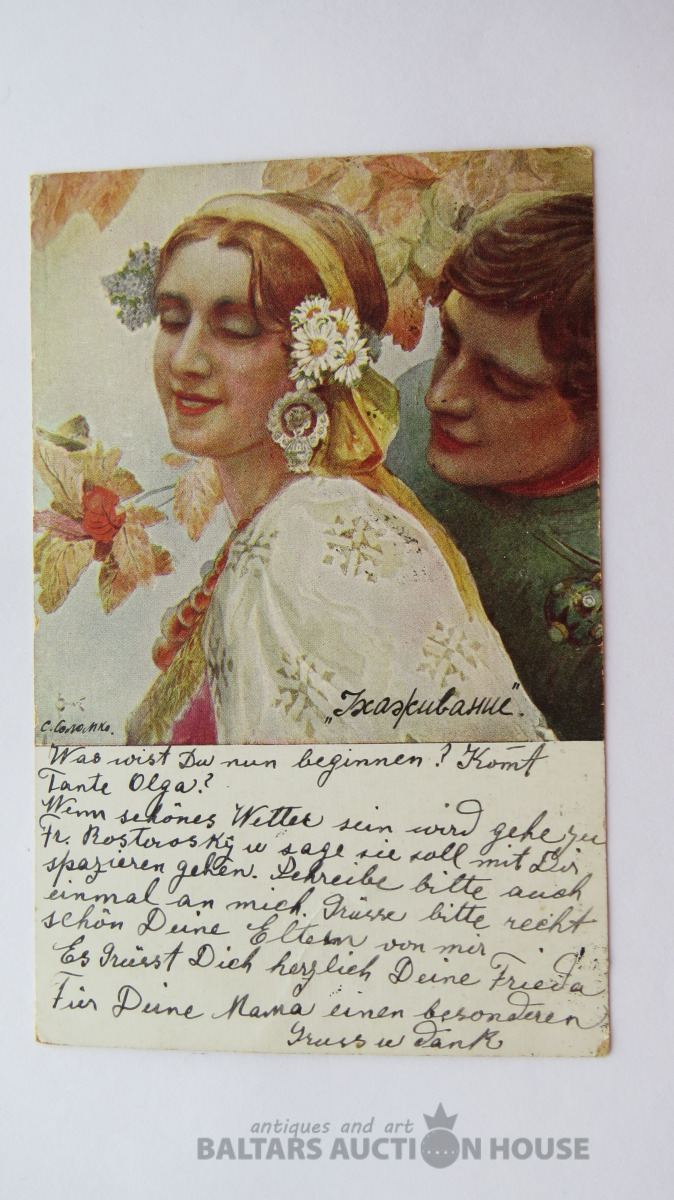 С. Соломко.
„Ухаживание".
Was wist Du nun beginnen? Kom̄t
Tante Olga?
Wenn schönes Wetter sein wird gehe zu
Fr. Rostowosky u sage sie soll mit Dir
spazieren gehen. Schreibe bitte auch
einmal an mich. Grüsse bitte recht
schön Deine Eltern von mir
Es Grüsst Dich herzlich Deine Frieda
Für Deine Mama einen besonderen
Gruss u dank
antiques and art
BALTARS AUCTION HOUSE